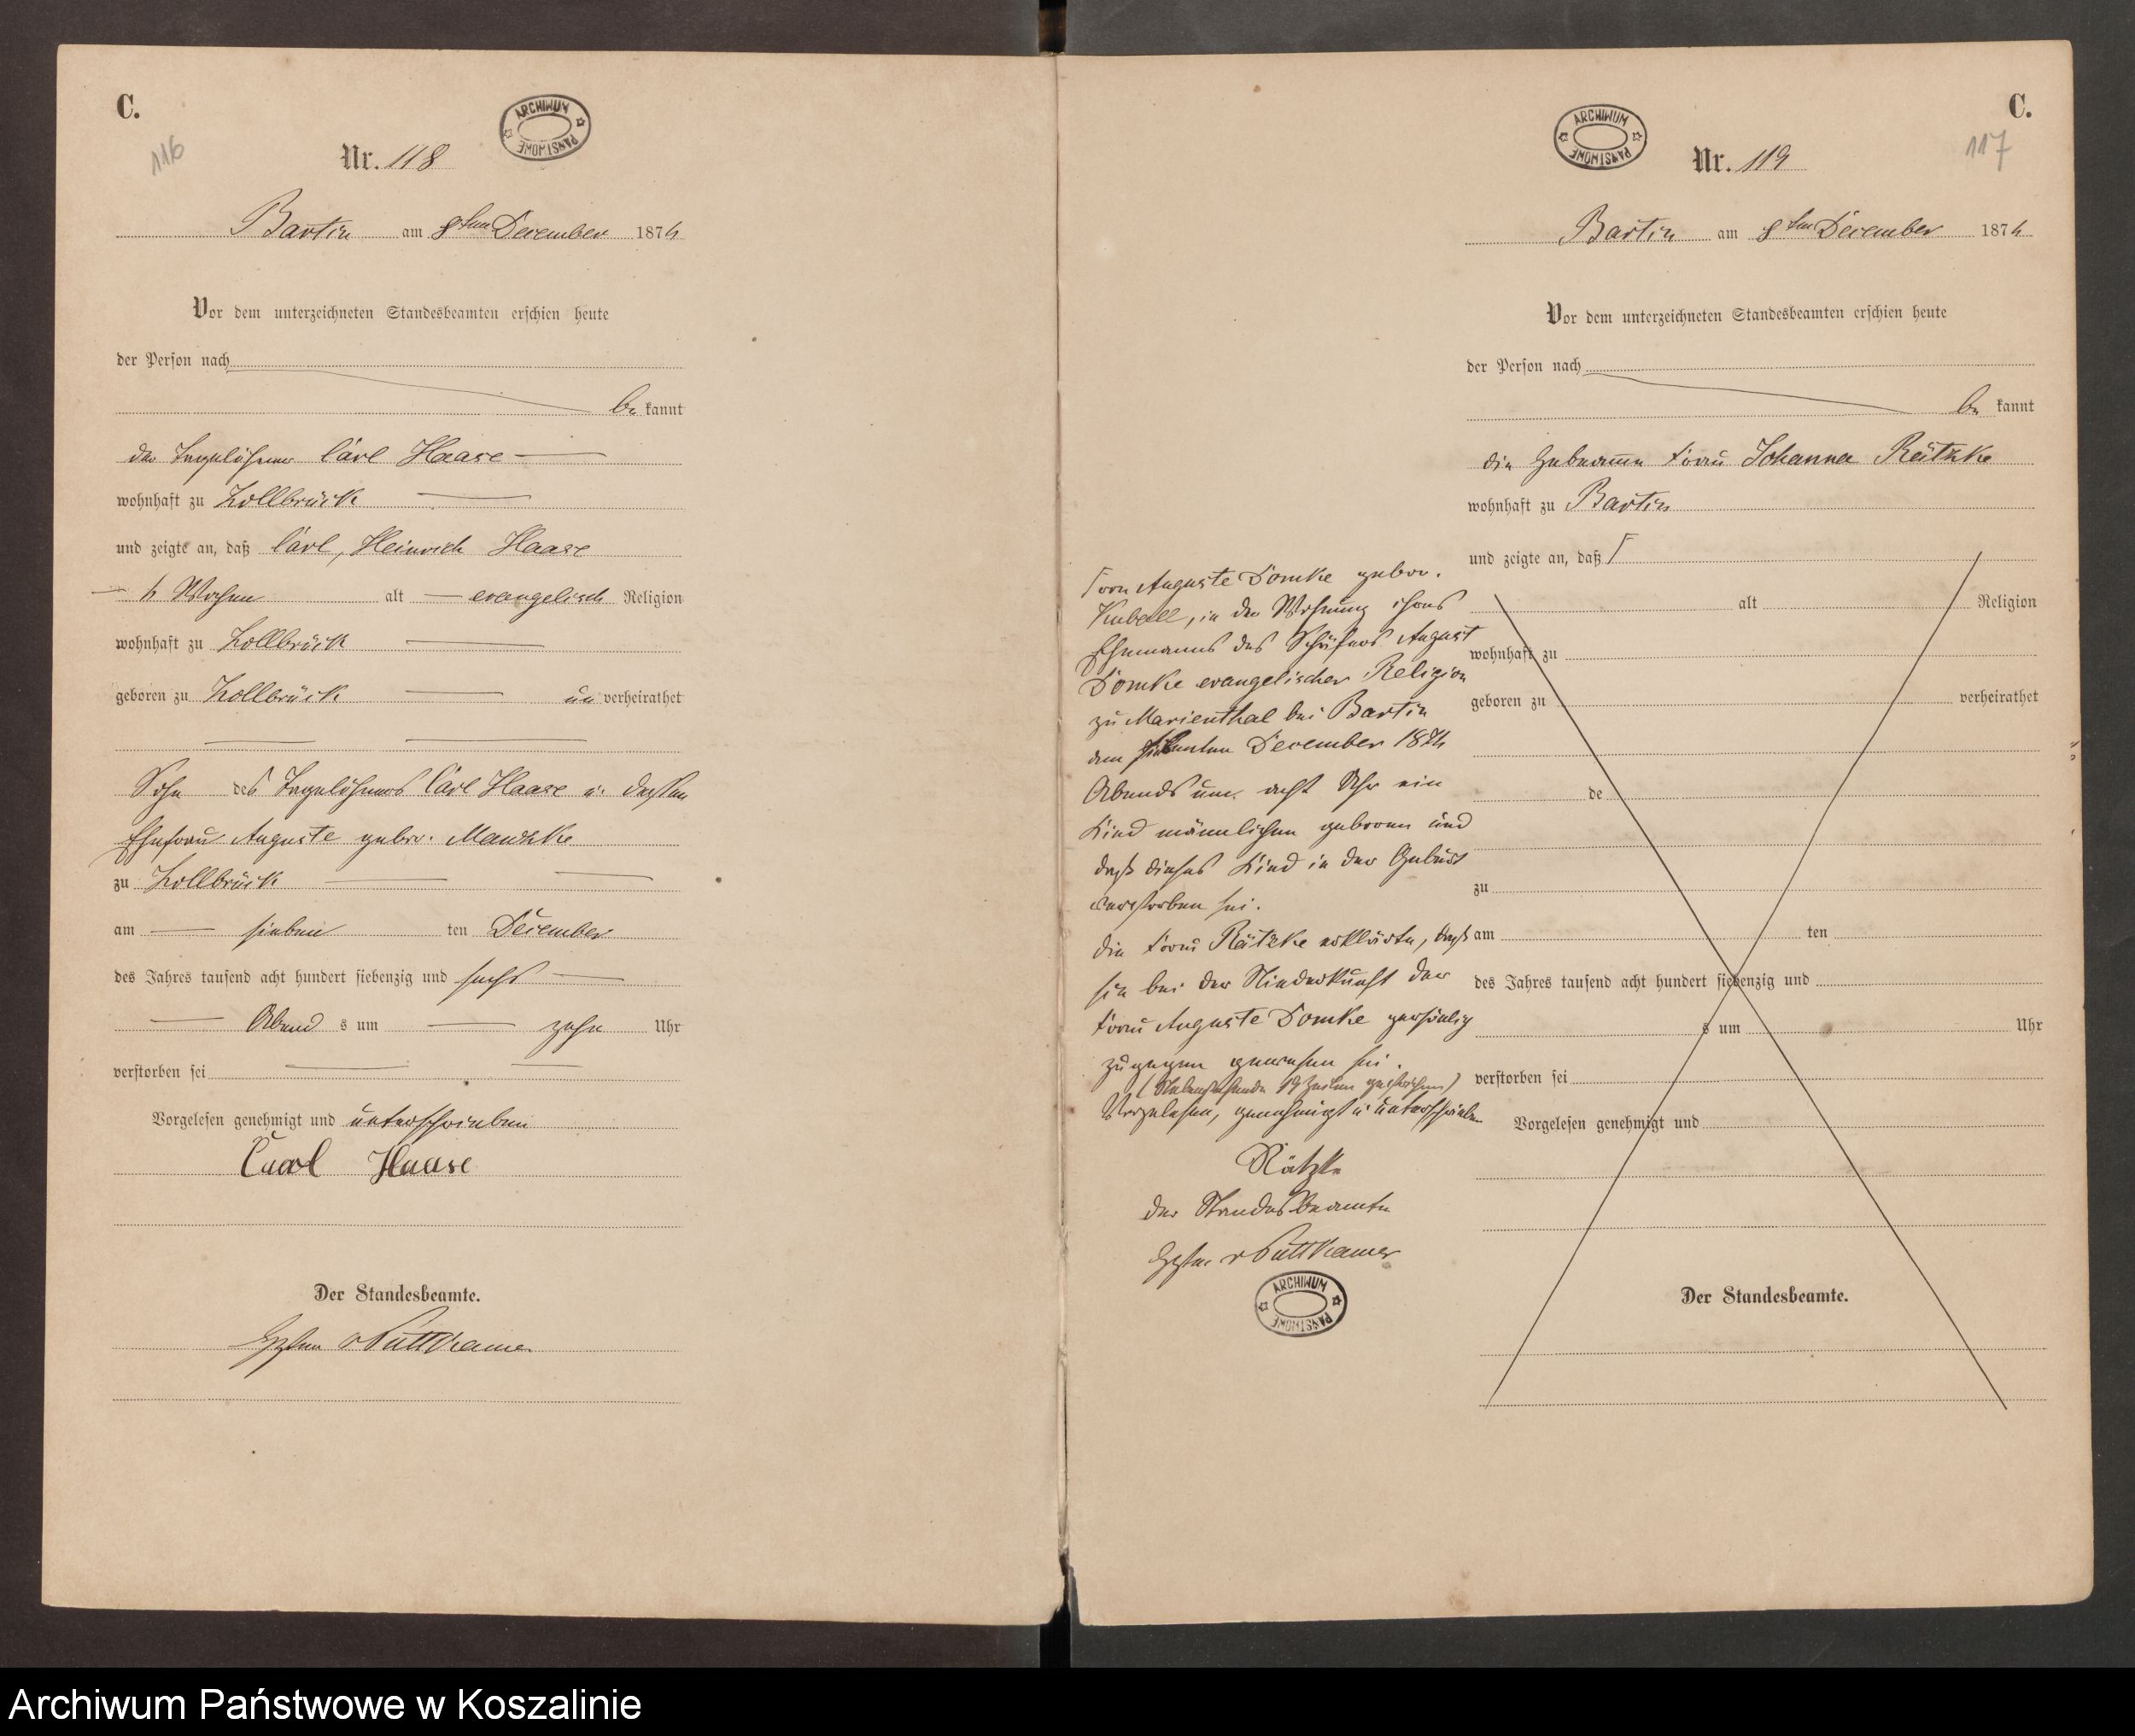 C.
116
ARCHIWUM PAŃSTWOWE
Nr. 118
Bartin am 8ten December 1876
Vor dem unterzeichneten Standesbeamten erschien heute
der Person nach
be kannt
der Tagelöhner Carl Haase
wohnhaft zu Zollbrück
und zeigte an, daß Carl, Heinrich Haase
6 Wochen alt evangelisch Religion
wohnhaft zu Zollbrück
geboren zu Zollbrück un verheirathet
Sohn des Tagelöhners Carl Haase u. dessen
Ehefrau Auguste gebor. Manzke
zu Zollbrück
am sieben ten December
des Jahres tausend acht hundert siebenzig und sechs
Abend s um zehn Uhr
verstorben sei
Vorgelesen genehmigt und unterschrieben
Carl Haase
Der Standesbeamte.
v Puttkamer
C.
117
ARCHIWUM PAŃSTWOWE
Nr. 119
Bartin am 8ten December 1876
Vor dem unterzeichneten Standesbeamten erschien heute
der Person nach
be kannt
die Hebamme Frau Johanna Rätzke
wohnhaft zu Bartin
und zeigte an, daß
alt Religion
wohnhaft zu
geboren zu verheirathet
de
zu
am ten
des Jahres tausend acht hundert siebenzig und
s um Uhr
verstorben sei
Vorgelesen genehmigt und
Der Standesbeamte.
Frau Auguste Domke gebor.
Kubell, in der Wohnung ihres
Ehemanns des Schäfers August
Domke evangelischer Religion
zu Marienthal bei Bartin
den siebenten December 1876
Abends um acht Uhr ein
Kind männlichen geboren und
daß dieses Kind in der Geburt
verstorben sei.
die Frau Rätzke erklärte, daß
sie bei der Niederkunft der
Frau Auguste Domke persönlich
zugegen gewesen sei.
(Nebenstehende 19 Zeilen gestrichen)
Vorgelesen, genehmigt u unterschrieben
Rätzke
der Standesbeamte
v Puttkamer
ARCHIWUM PAŃSTWOWE
Archiwum Państwowe w Koszalinie